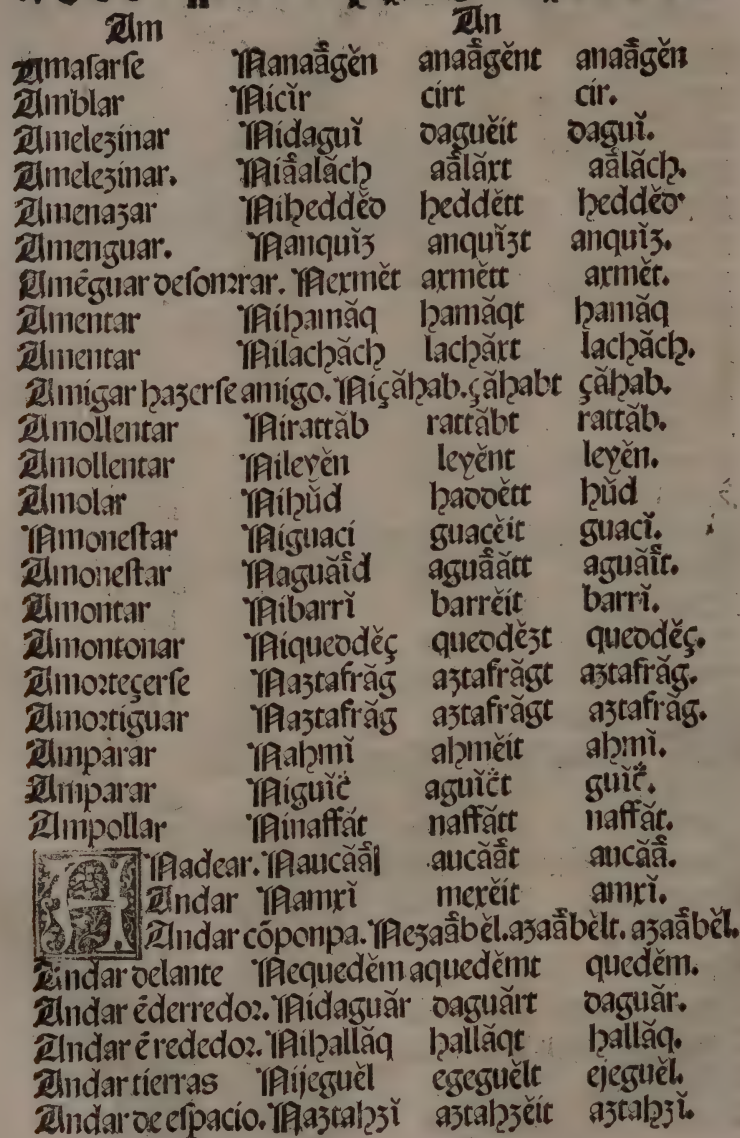 Am An
Amasarse Nanaâgĕn anaâgĕnt anaâgĕn
Amblar Nicĭr cirt cir.
Amelezinar Nidaguĭ daguĕit daguĭ.
Amelezinar. Niâalăch aâlăxt aâlăch.
Amenazar Niheddĕd heddĕtt heddĕd
Amenguar. Nanquĭz anquĭzt anquĭz.
Amẽguar desonrrar. Nexmĕt axmĕtt axmĕt.
Amentar Nihamăq hamăqt hamăq
Amentar Nilachăch lachăxt lachăch.
Amigar hazerse amigo. Niçăhab. çăhabt çăhab.
Amollentar Nirattăb rattăbt rattăb.
Amollentar Nileyĕn leyĕnt leyĕn.
Amolar Nihŭd haddĕtt hŭd
Amonestar Niguaci guacĕit guacĭ.
Amonestar Naguăîd aguăâtt aguăît.
Amontar Nibarrĭ barrĕit barrĭ.
Amontonar Niqueddĕç queddĕzt queddĕç.
Amorteçerse Naztafrăg aztafrăgt aztafrăg.
Amortiguar Naztafrăg aztafrăgt aztafrăg.
Amparar Nahmĭ ahmĕit ahmĭ.
Amparar Niguĭĉ aguĭĉt guĭĉ.
Ampollar Ninaffăt naffătt naffăt.
Anadear. Naucăâ aucăât aucăâ.
Andar Namxĭ mexĕit amxĭ.
Andar cõ ponpa. Nezaâbĕl. azaâbĕlt. azaâbĕl.
Andar delante Nequedĕm aquedĕmt quedĕm.
Andar ẽ derredor. Nidaguăr daguărt daguăr.
Andar ẽ rededor. Nihallăq hallăqt hallăq.
Andar tierras Nijeguĕl egeguĕlt ejeguĕl.
Andar de espacio. Naztahzĭ aztahzĕit aztahzĭ.